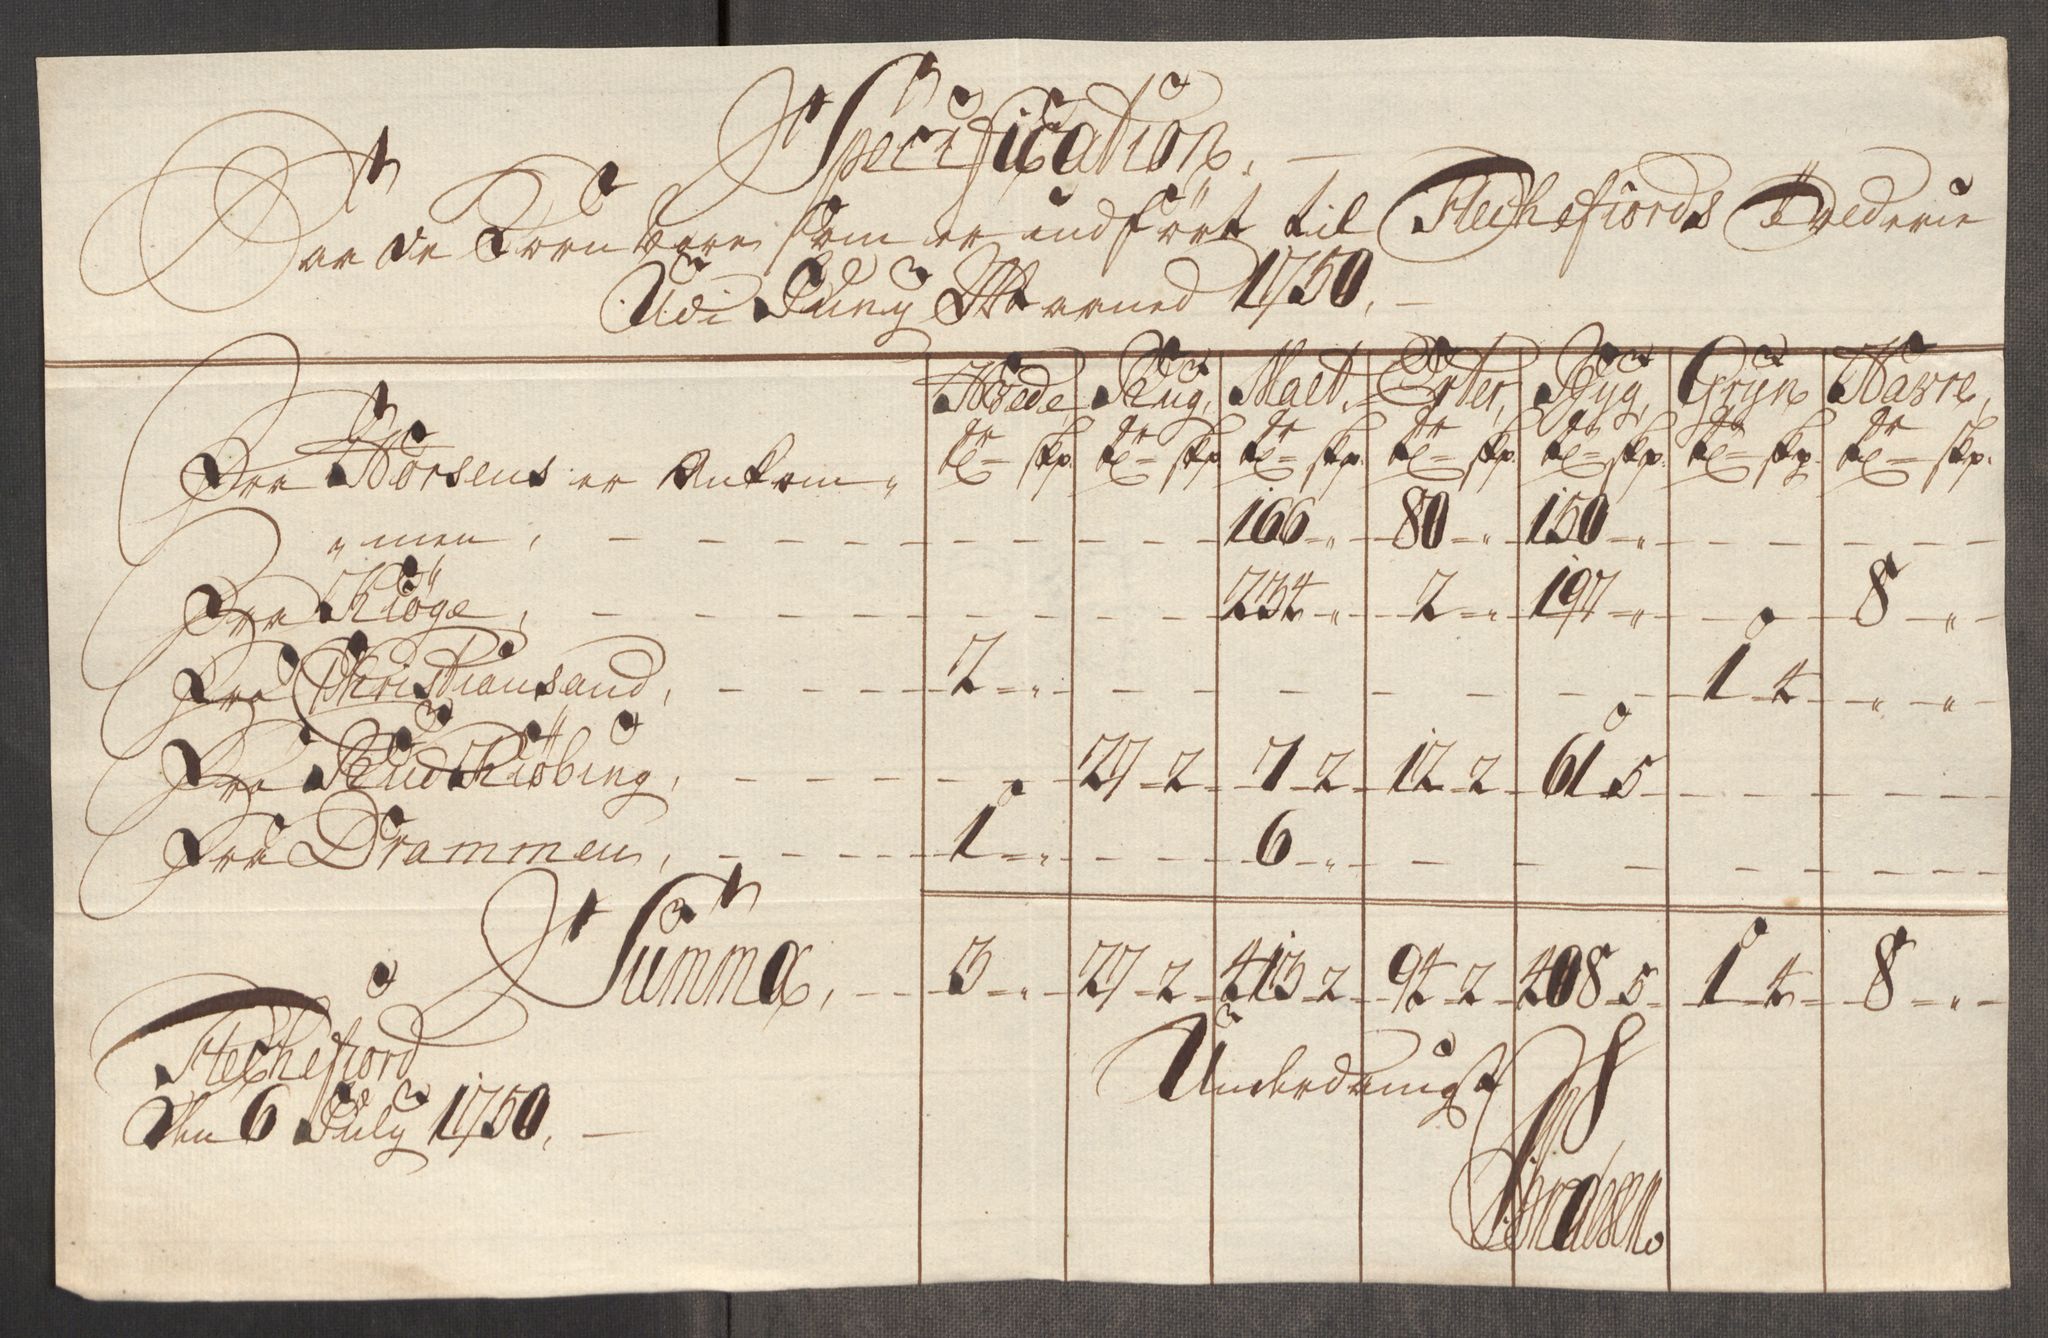 Specification
Paa de Korn Vare som er indført til Flechefiords Tolderie
Udi Juny Maaned 1750,
Hvede, Rug, Malt, Erter, Byg, Gryn, Havre,
tdr skp. tdr skp tdr skp. tdr skp. tdr skp. tdr skp. tdr skp.
Fra Horsens er Ankom„
„men, 166 „ 80 „ 150 „
Fra Kiöge, 234 „ 2 „ 197 „ 8 „
Fra Christiansand, 2 „ 1 4 „ „
Fra Rudkiöbing, 27 2 7 2 12 2 61 5
Fra Drammen, 1 „ 6 „
Summa, 3 „ 27 2 413 2 94 2 408 5 1 4 8 „
Flechefiord
den 6 July 1750,
Underdanigst